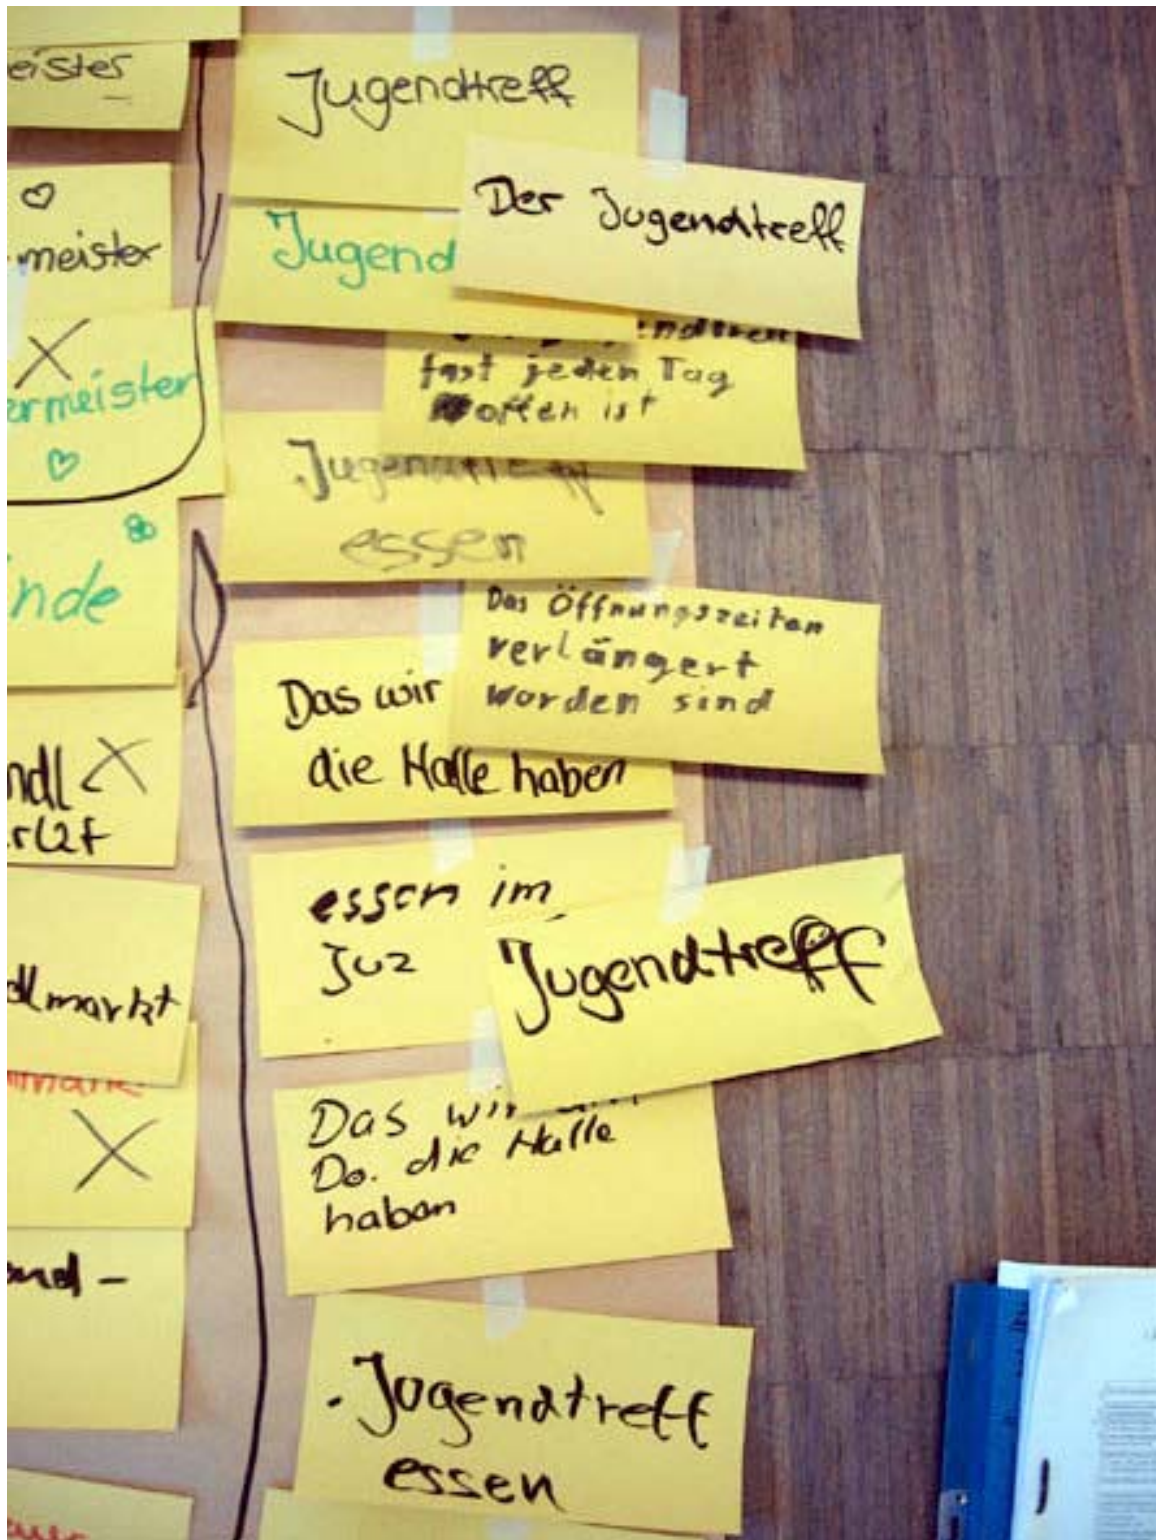 eister
meister
ermeister
nde
ndl
dlmarkt
Jugendtreff
Der Jugendtreff
Jugend
fast jeden Tag
offen ist
Jugendtreff
essen
Das Öffnungszeiten
verlängert
worden sind
Das wir
die Halle haben
essen im
Juz
Jugendtreff
Das wir
Do. die Halle
haben
. Jugendtreff
essen